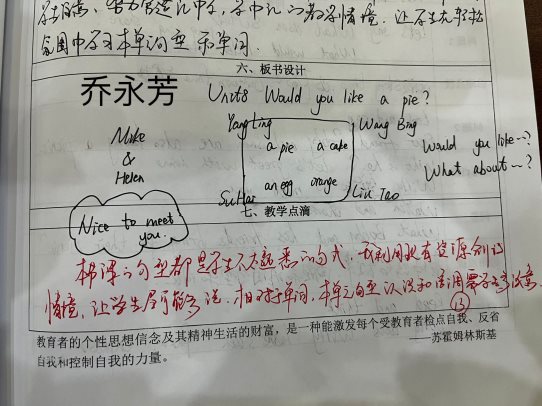 氛围中学习本单词句型和单词.
六、板书设计
乔永芳
Unit8 Would you like a pie?
Yang Ling
Wang Bing
Mike
&
Helen
a pie a cake
an egg orange
Would you like~?
What about~?
Su Hai
Liu Tao
Nice to meet
you.
七、教学点滴
本课的句型都是学生不太熟悉的句式,我利用现有资源创设
情境,让学生尽可能多说.相对于单词,本单元句型
教育者的个性思想信念及其精神生活的财富,是一种能激发每个受教育者检点自我、反省
自我和控制自我的力量。
——苏霍姆林斯基